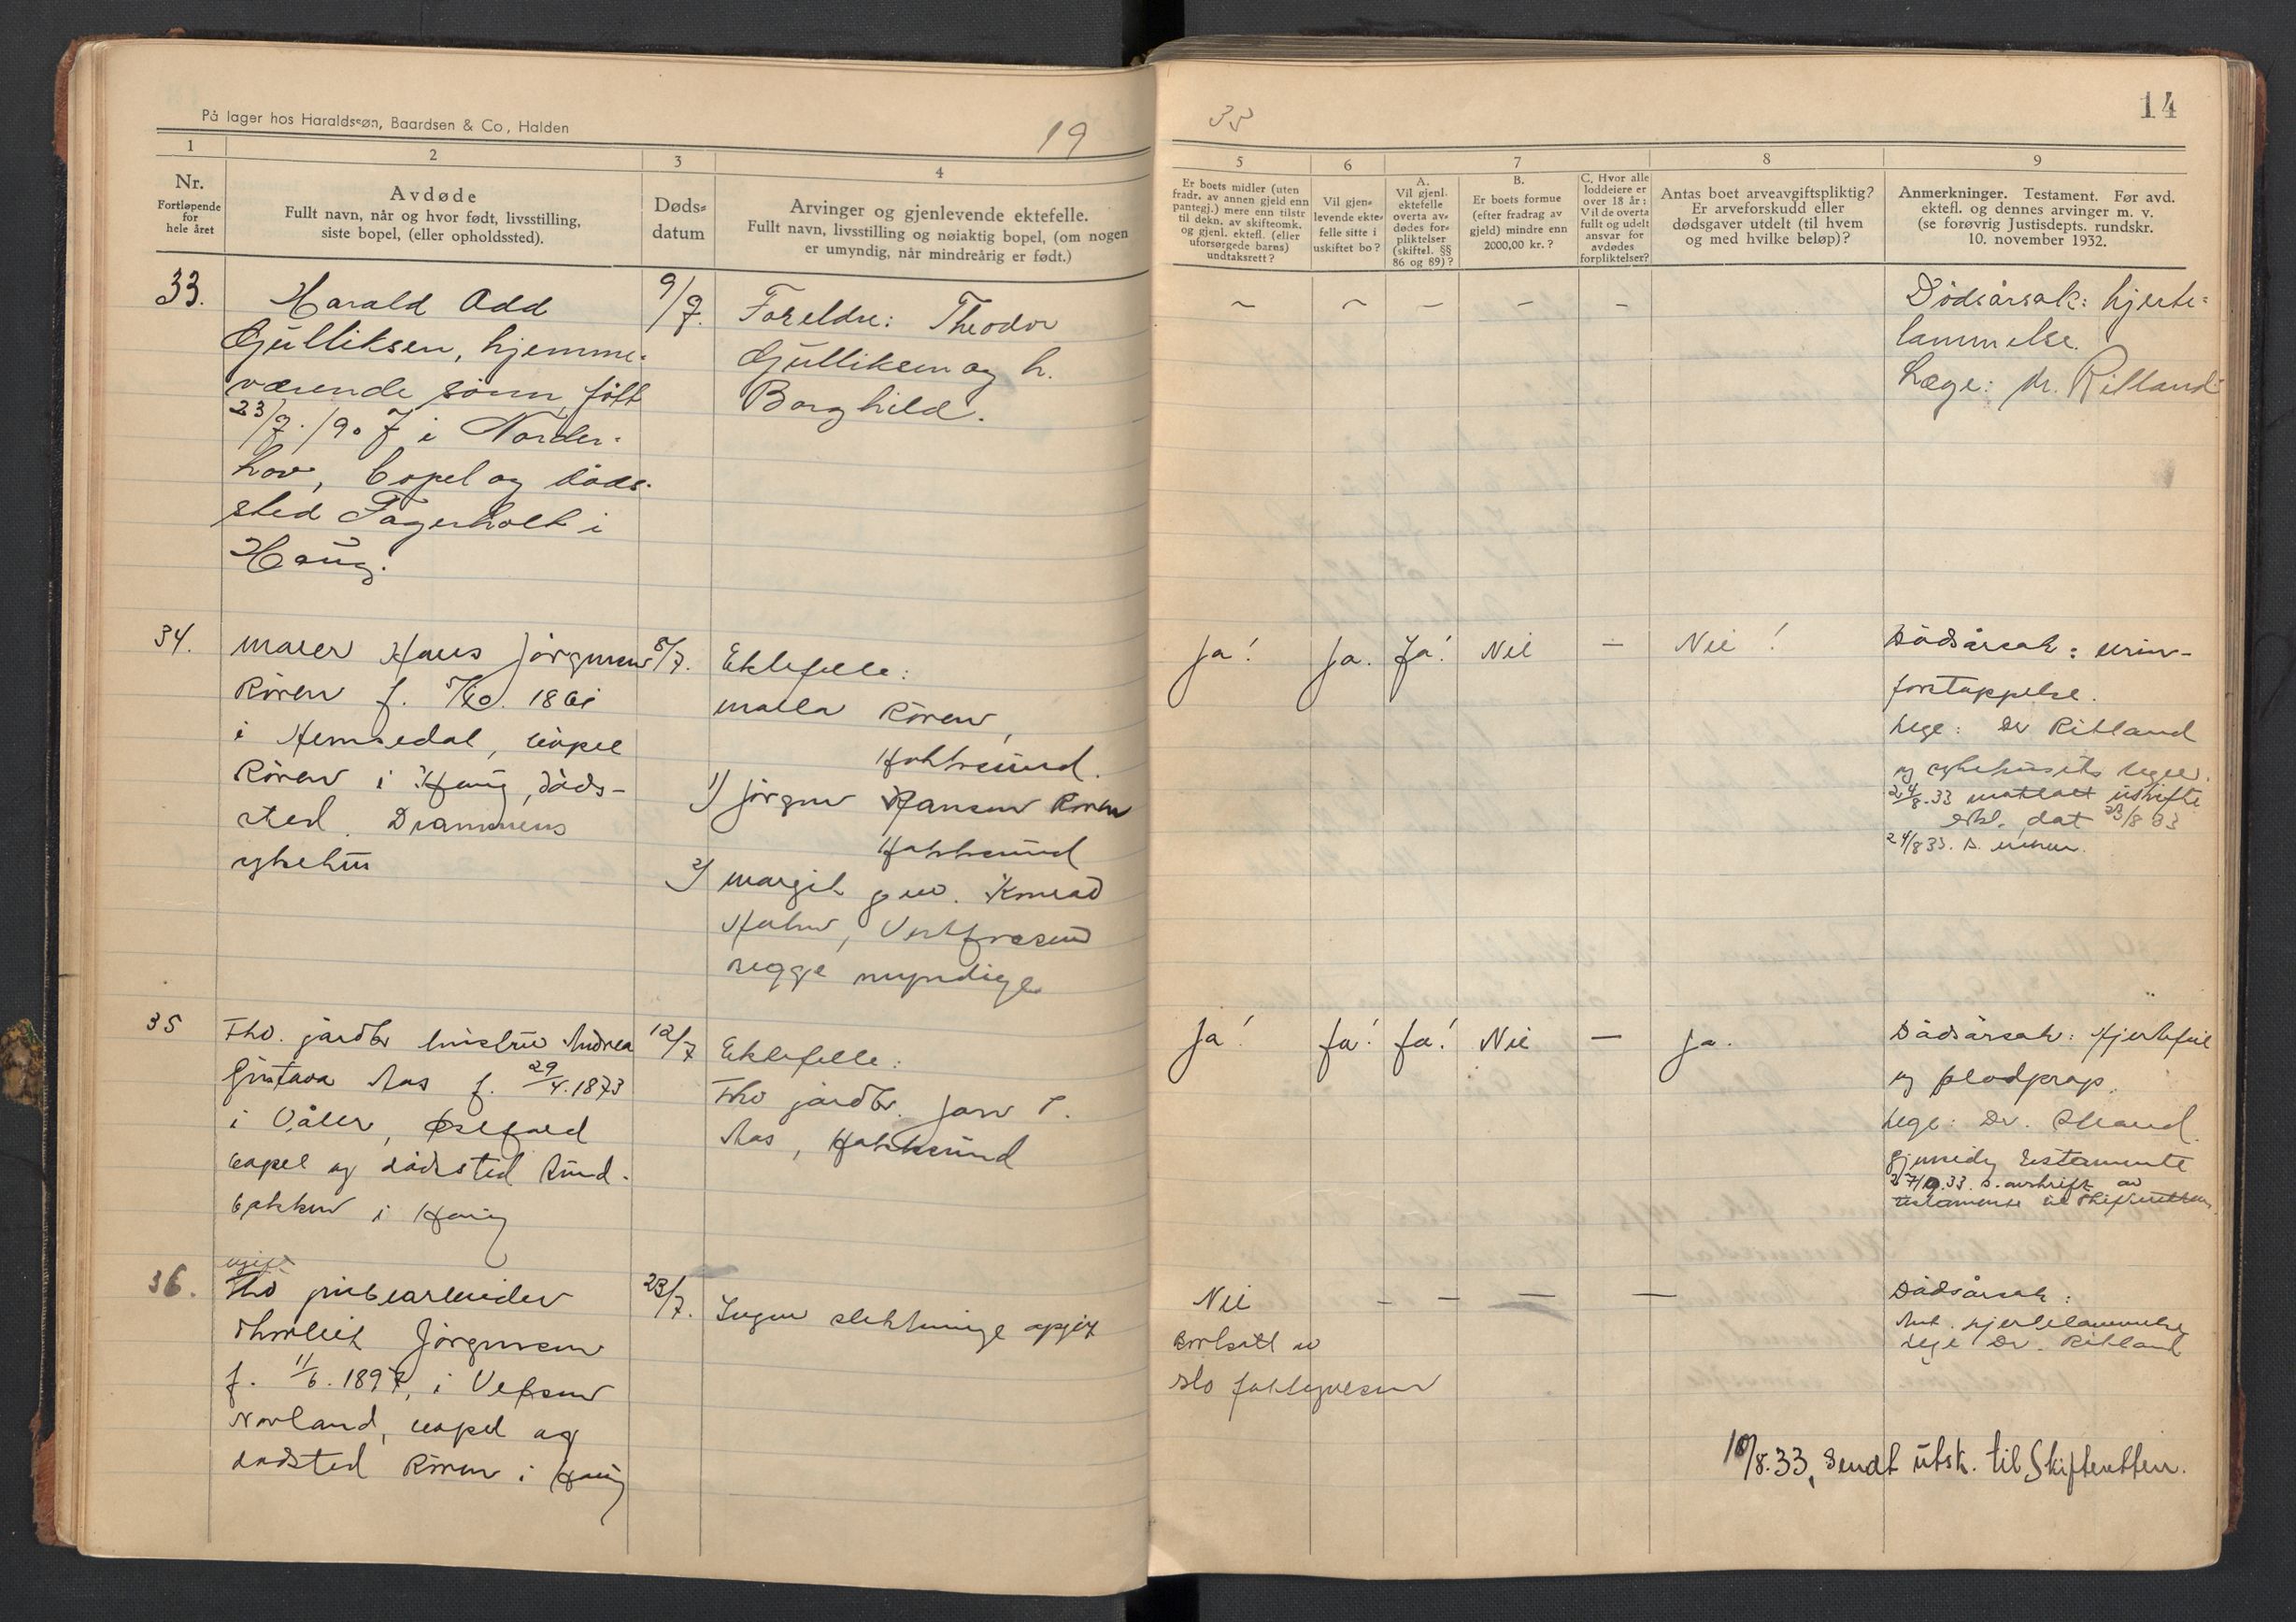 På lager hos Haraldssøn, Baardsen & Co, Halden
19
1
2
3
4
Nr.
Fortløpende
for
hele året
Avdøde
Fullt navn, når og hvor født, livsstilling,
siste bopel, (eller opholdssted).
Døds-
datum
Arvinger og gjenlevende ektefelle.
Fullt navn, livsstilling og nøiaktig bopel, (om nogen
er umyndig, når mindreårig er født.)
33.
Harald Odd
Gulliksen, hjemme-
værende sønn, født
23/7. 1907 i Norder-
hov, bopel og døds-
sted Fagerholt i
Haug.
9/7.
Foreldre: Theodor
Gulliksen og h.
Borghild.
34.
maler Hans Jørgensen
Røren f. 1861
i Hemsedal, bopel
Røren i Haug, døds-
sted. Drammens
sykehus
8/7.
Ektefelle:
Røren,
Hokksund.
1) Jørgen Hansen Røren
Hokksund
2) Margit g. m. Konrad
Vestfossen
begge myndige
35
Fhv. jardbr. hustru Andrea
Gustava Aas f. 29/4.1873
i Våler, Østfold
bopel og dødsted Sund-
bakken i Haug
12/7
Ektefelle:
Fhv jardbr. Jarn P.
Aas, Hokksund
36.
ugift
Fhv grubearbeider
Thorleif Jørgensen
f. 11/6. 1897, i Vefsen
Norland, bopel og
dødsted Røren i Haug
23/7.
Ingen slektninge opgit
35
14
5
6
7
8
9
Er boets midler (uten
fradr. av annen gjeld enn
pantegj.) mere enn tilstr
til dekn. av skifteomk.
og gjenl. ektef. (eller
uforsørgede barns)
undtaksrett?
Vil gjen-
levende ekte-
felle sitte i
uskiftet bo?
A.
Vil gjenl.
ektefelle
overta av-
dødes for-
pliktelser
(skiftel. §§
86 og 89)?
B.
Er boets formue
(efter fradrag av
gjeld) mindre enn
2000,00 kr.?
C. Hvor alle
loddeiere er
over 18 år:
Vil de overta
fullt og udelt
ansvar for
avdødes
forpliktelser?
Antas boet arveavgiftspliktig?
Er arveforskudd eller
dødsgaver utdelt (til hvem
og med hvilke beløp)?
Anmerkninger. Testament. Før avd.
ektefl. og dennes arvinger m. v.
(se forøvrig Justisdepts. rundskr.
10. november 1932.
~ ~ — — —
Dødsårsak: hjerte-
lammelse.
Læge: dr. Ritland
Ja! Ja. Ja! Nei — Nei!
Dødsårsak: urin-
forstoppelse.
Lege: Dr Ritland
og sykehusets leger.
24/8.33 mottatt uskifte
erkl. dat 23/8 33
24/8 33. s.
Ja! Ja! Ja! Nei — Ja.
Dødsårsak: Hjertefeil
og blodprop.
Lege: Dr. Strand.
Gjensidig testamente
27/9.33. s. avskrift av
testamente til Skifteretten.
Nei — — — —
Bortsatt av
Slo fattigvesen
Dødsårsak:
Ant. hjertelammelse
Lege Dr. Ritland
10/8.33, Sendt utsk. til Skifteretten.